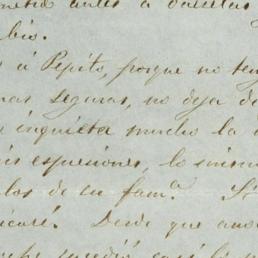 antes á
bio.
á Pepito, porque no ten
mas seguras, no deja de
inquieta mucho la
is espresiones, lo mism
los de su famª. Si
icaré. Desde que ano
che sucedió